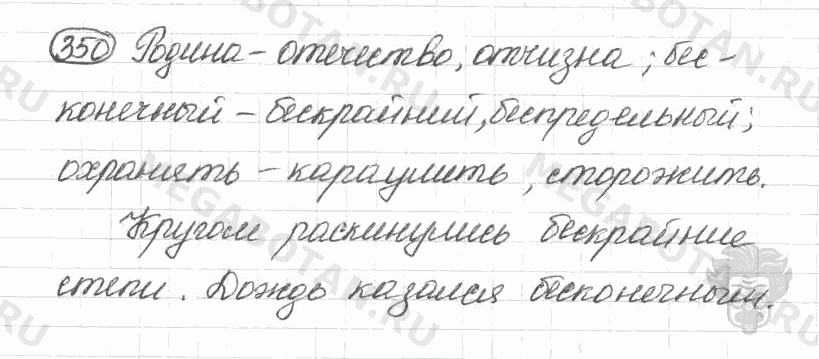 350 Родина - отечество, отчизна; бес-
конечный - бескрайний, беспредельный;
охранять - караулить, сторожить.
Кругом раскинулись бескрайние
степи. Дождь казался бесконечным.
MEGABOTAN.RU